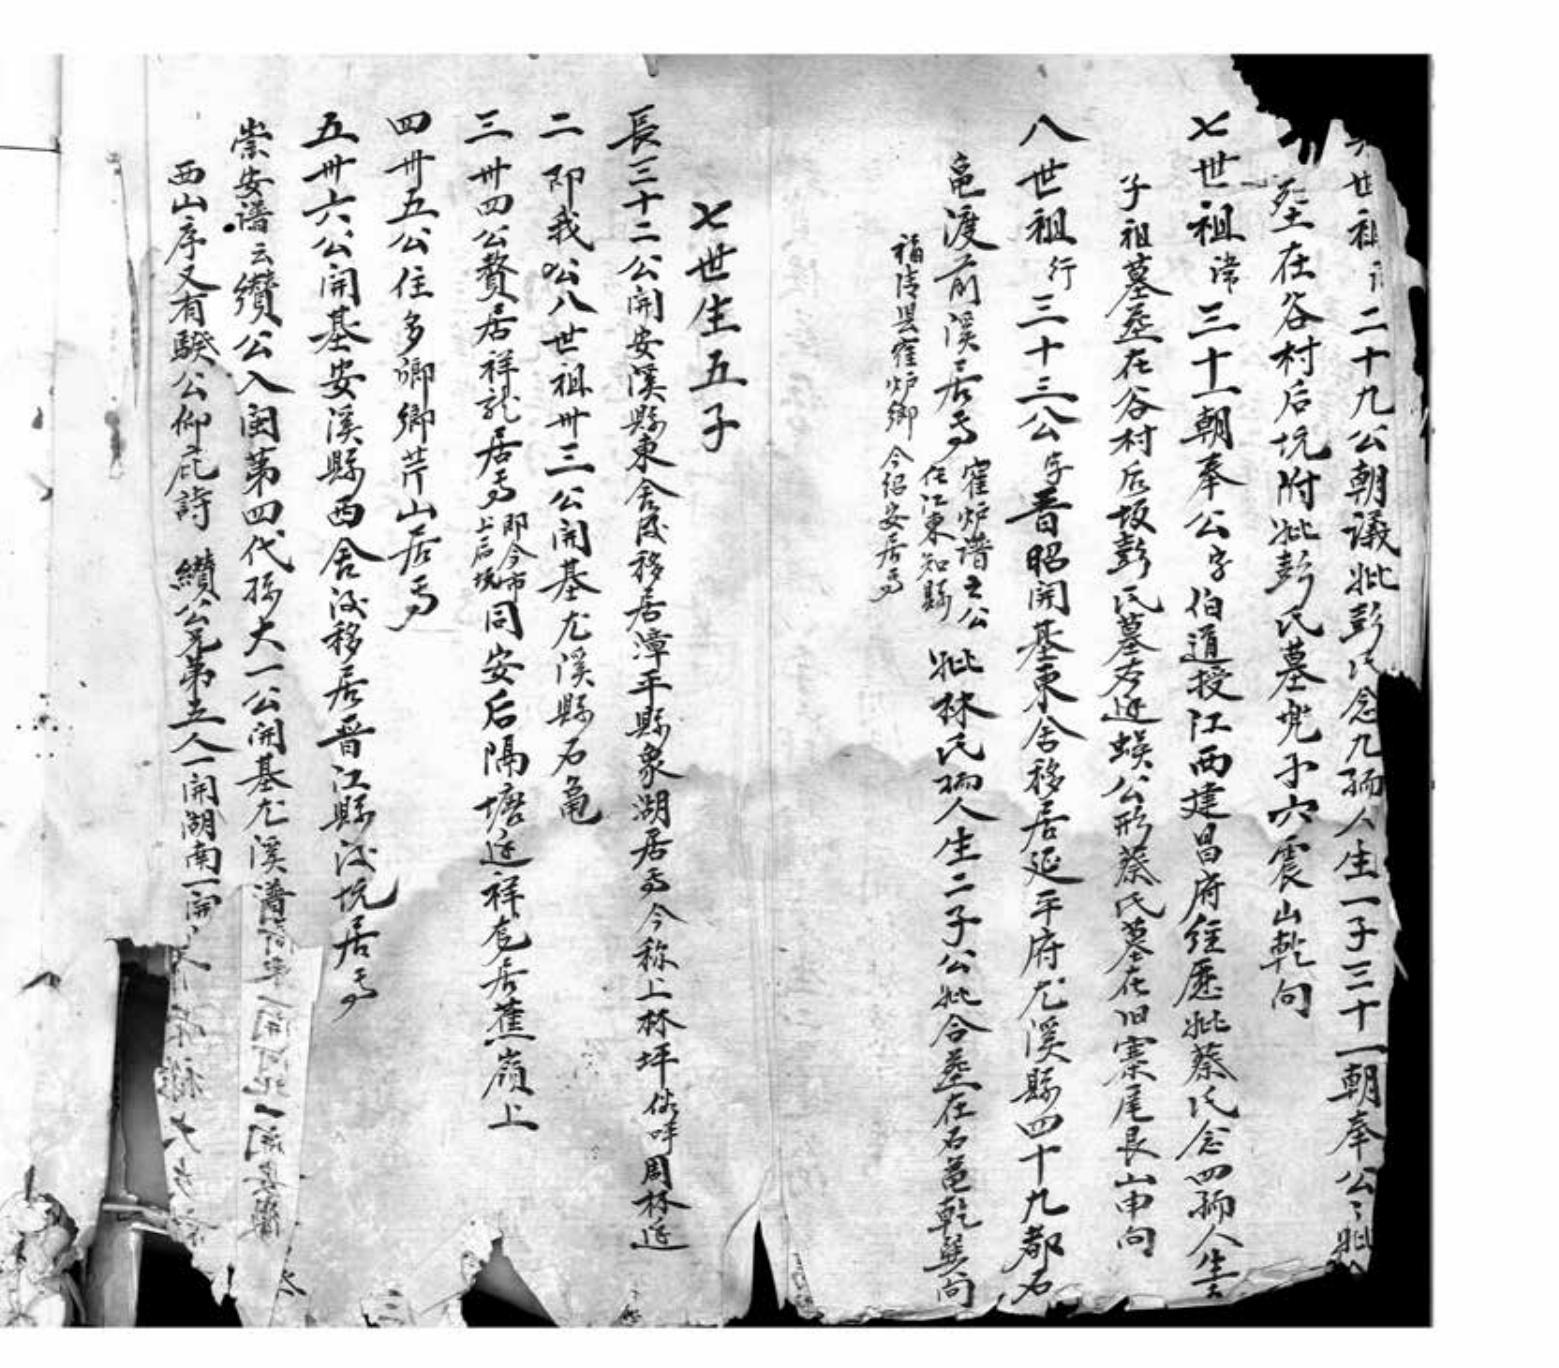 世祖 二十九公朝議妣彭氏念九孺人生一子三十一朝奉公〻妣
塟在谷村后坑附妣彭氏墓兜子穴震山乾向
七世祖常三十一朝奉公字伯道授江西建昌府經歷妣蔡氏念四孺人生五
子祖墓塟在谷村后坂彭氏墓右延蜈公形蔡氏墓在旧寨尾艮山申向
八世祖行三十三公字晋昭開基東舍移居延平府尤溪縣四十九都石
龜渡前溪居焉
霍炉譜云公
任江東知縣
妣林氏孺人生二子公妣合塟在石龜乾巽向
福清县霍炉鄉 今紹安居焉
七世生五子
長三十二公開安溪縣東舍后移居漳平縣象湖居焉今称上林坪俗呼周林廷
二 即我公八世祖卅三公開基尤溪縣石龜
三卅四公贅居祥龍居焉
即今市
上后坑
同安后隔塘廷祥危居蕉嶺上
四卅五公住多卿鄉芹山居焉
五卅六公開基安溪縣西舍后移居晋江縣沙坑居焉
崇安譜云纘公入闽第四代孫大一公開基尤溪譜
西山序又有騤公仰庇詩 纘公兄弟五人一開湖南一開